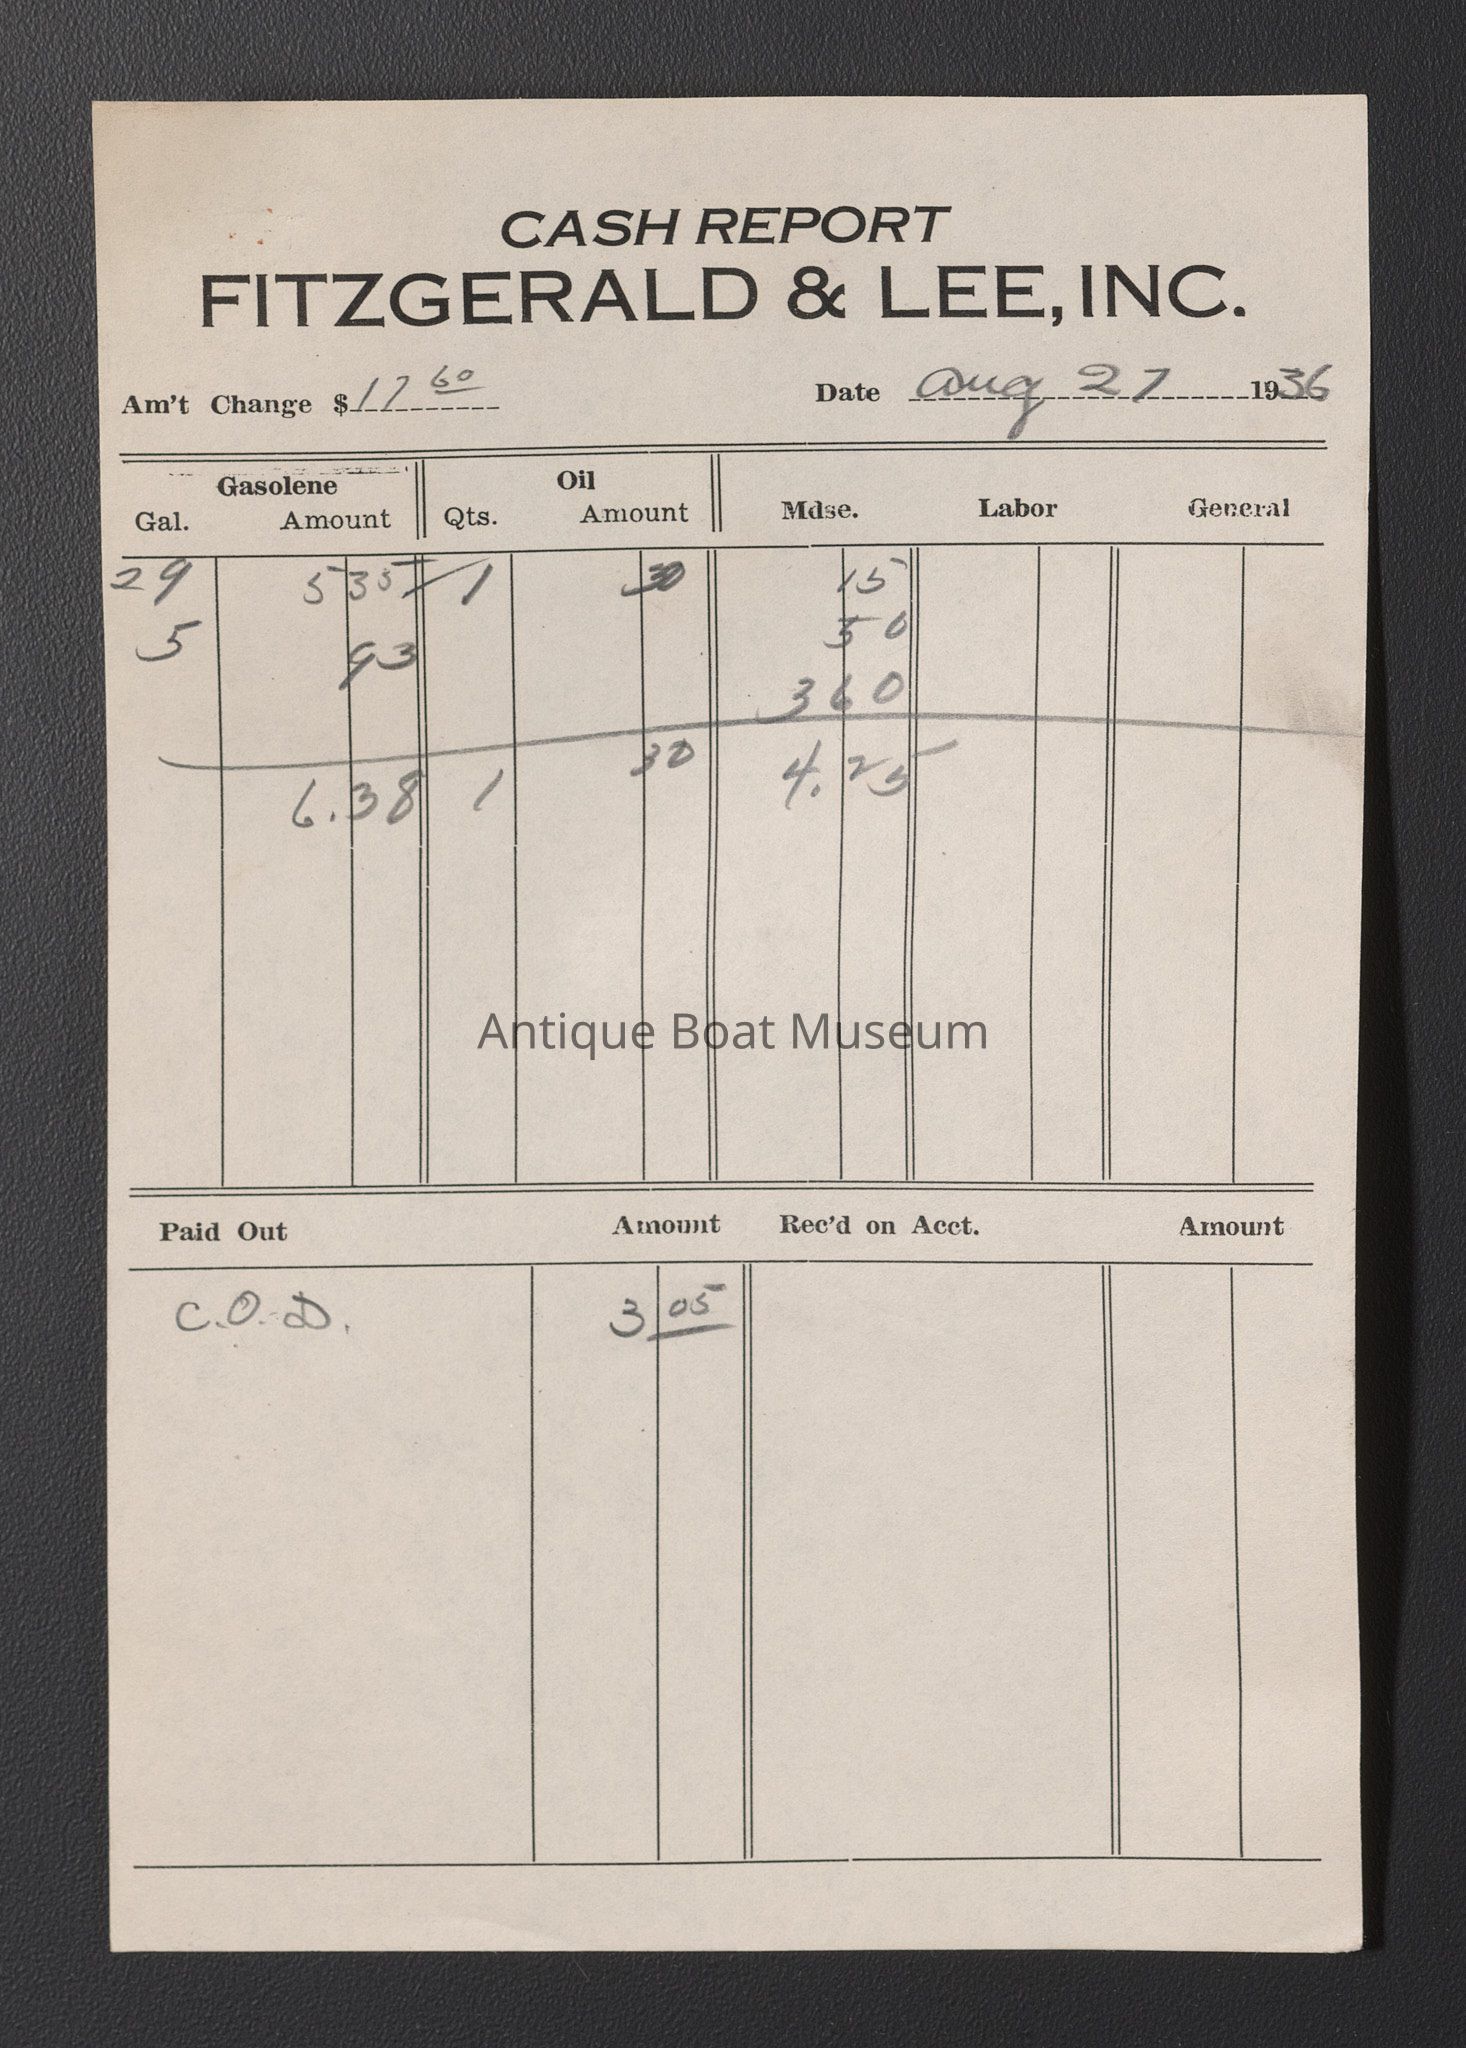 CASH REPORT
FITZGERALD & LEE, INC.
Am't Change $ 17 60 Date Aug 27 1936
Gasolene Oil
Gal. Amount Qts. Amount Mdse. Labor General
29 5 35 1 30 15
5 93 50
3 60
6.38 1 30 4.25
Antique Boat Museum
Paid Out Amount Rec'd on Acct. Amount
C.O.D. 3 05